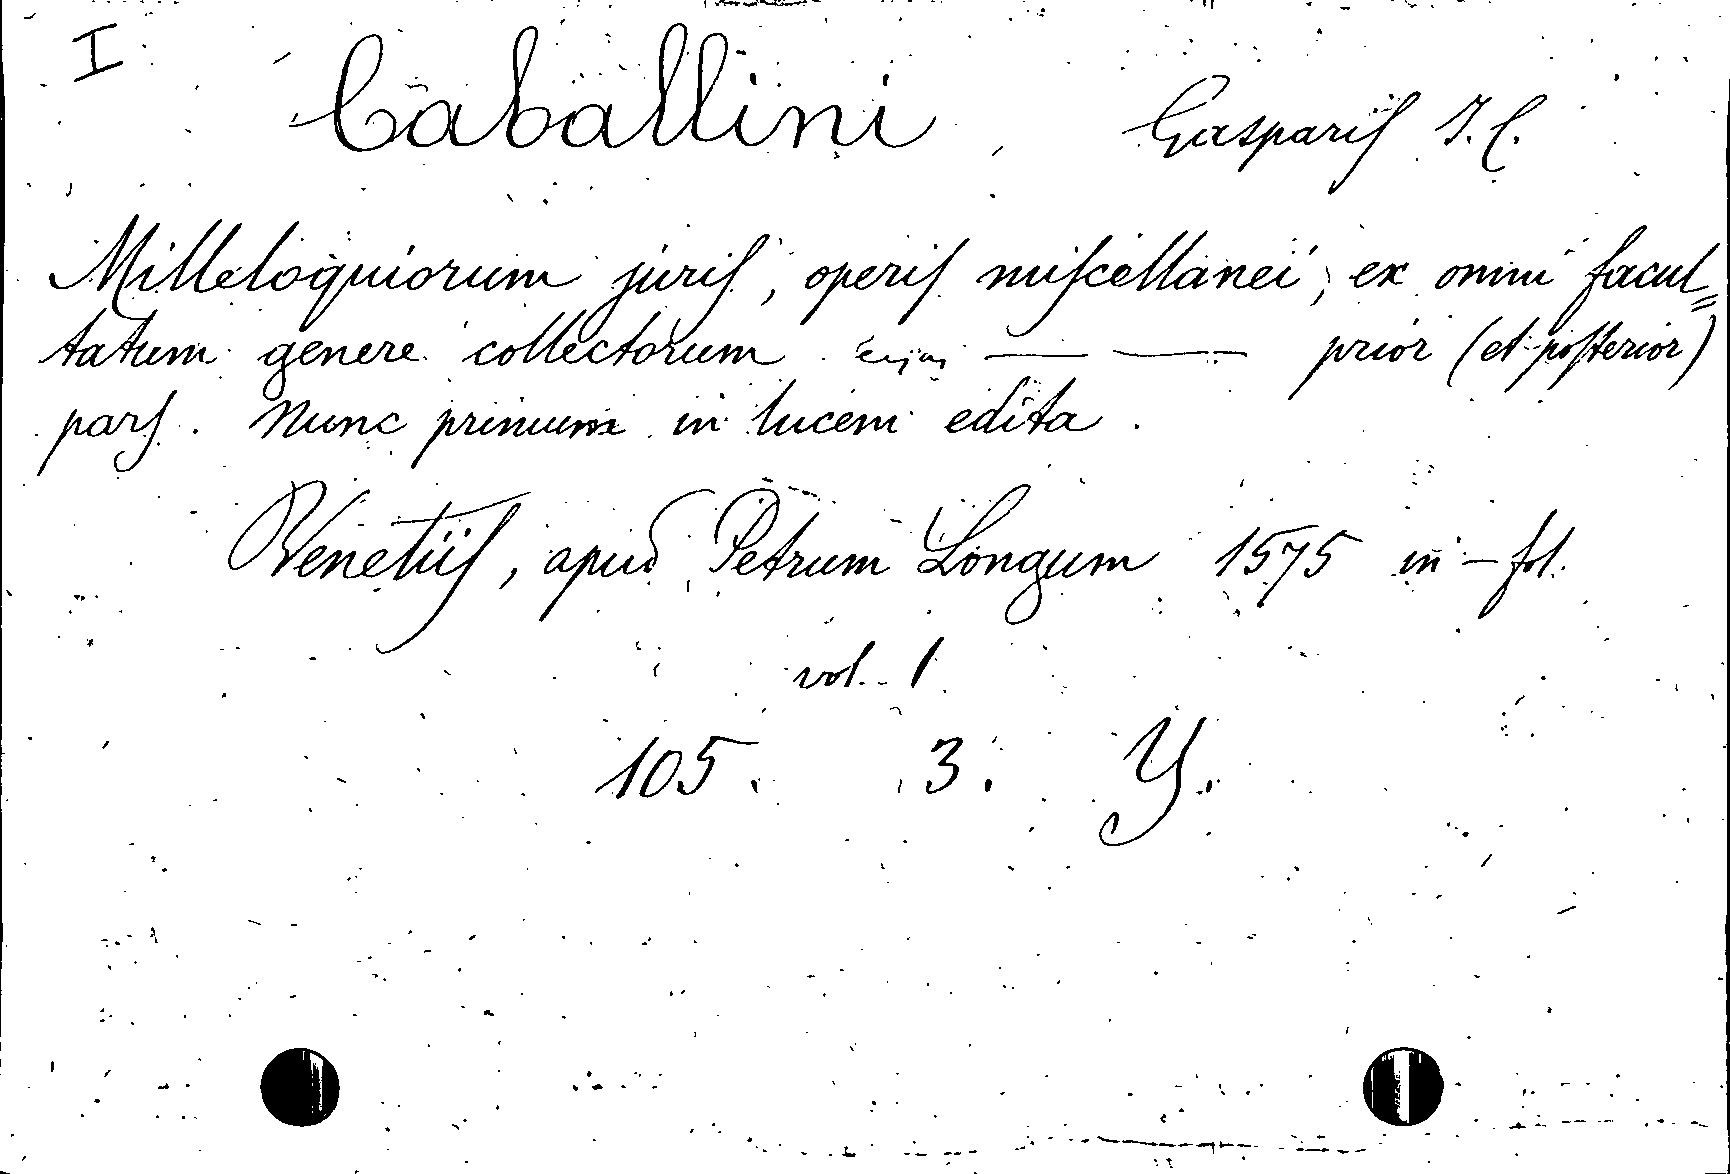 I
Caballini Gasparis J. C.
Milleloquiorum juris, operis miscellanei, ex omni facul=
tatum genere collectorum ejus — — prior (et posterior)
pars. Nunc primum in lucem edita.
Venetiis, apud Petrum Longum 1575 in-fol.
vol. 1
105. 3. Y.